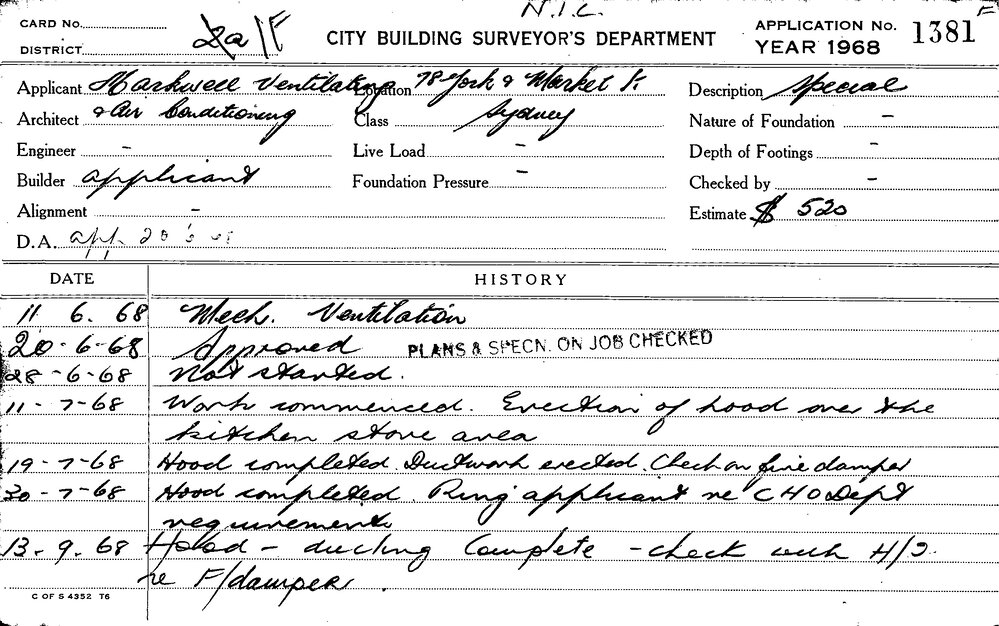 N.I.L.
CARD No. 2a/F CITY BUILDING SURVEYOR'S DEPARTMENT APPLICATION No. 1381 F
DISTRICT YEAR 1968
Applicant Markwell Ventilating Location 78 York & Market St. Description Special
Architect & Air Conditioning Class Sydney Nature of Foundation -
Engineer - Live Load - Depth of Footings -
Builder applicant Foundation Pressure - Checked by -
Alignment - Estimate $ 520
D.A. app. 20 6 68
DATE HISTORY
11 6. 68 Mech. Ventilation
20-6-68 Approved PLANS & SPECN. ON JOB CHECKED
28-6-68 Not started.
11-7-68 Work commenced. Erection of hood over the
kitchen stove area
19-7-68 Hood completed. Ductwork erected. Check on fire damper
30-7-68 Hood completed. Ring applicant re CHO Dept
requirements
13.9.68 Hood - ducting Complete - check with H/I.
re F/damper.
C OF S 4352 T6